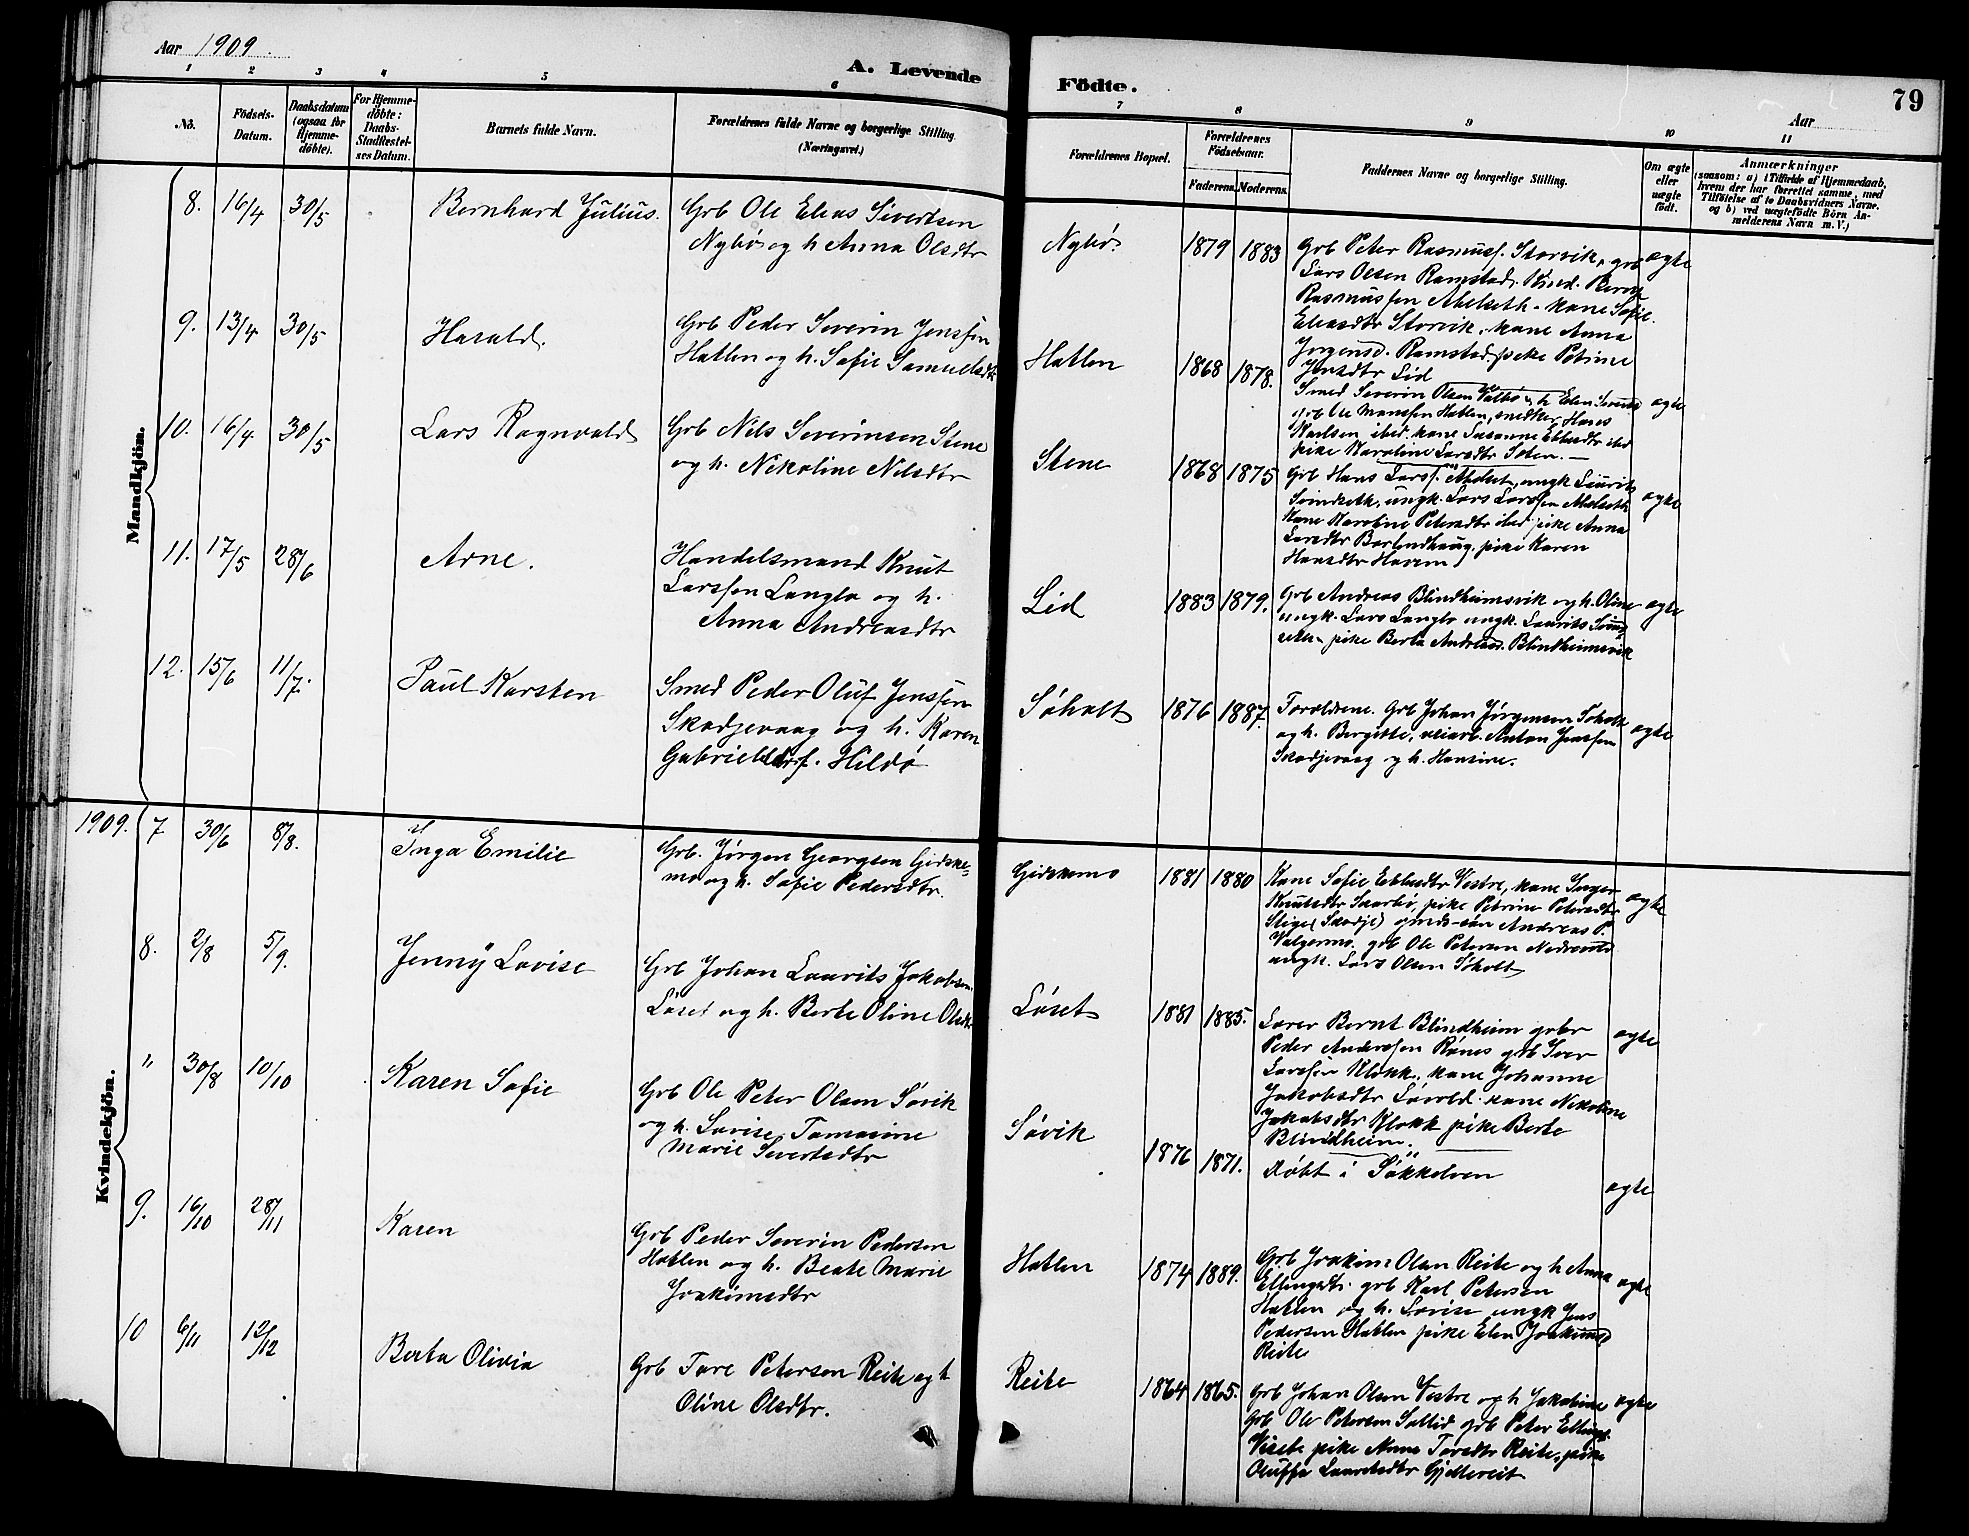 Aar 1909.
A. Levende
Födte.
79
Aar
1
2
3
4
5
6
7
8
9
10
11
No.
Födsels-
Datum.
Daabsdatum
(ogsaa for
Hjemme-
döbte).
For Hjemme-
döbte:
Daabs-
Stadfæstel-
ses Datum.
Barnets fulde Navn.
Forældrenes fulde Navne og borgerlige Stilling.
(Næringsvei.)
Forældrenes Bopæl.
Forældrenes
Födselsaar.
Faderens.
Moderens.
Faddernes Navne og borgerlige Stilling.
Om ægte
eller
uægte
födt.
Anmærkninger
(saasom: a) i Tilfælde af Hjemmedaab,
hvem der har forrettet samme, med
Tilföielse af to Daabsvidners Navne,
og b) ved uægtefödte Börn An-
melderens Navn m. V.)
Mandkjön.
8. 16/4 30/5 Bernhard Julius. Grb Ole Elias Sivertsen
Nybø og h Anna Olsdtr
Nybø. 1879 1883
Grb Peter Rasmusf. Storvik, grb
Lars Olsen Ramstad.
Rasmussen Abelseth. kone Sofie
Eliasdtr Storvik, kone Anna
Jørgensd. Ramstad, pike Petrine
Jensdtr Lid
ægte
9. 13/4 30/5 Harald. Grb Peder Severin Jenssen
Hatlen og h. Sofie Samuelsdtr
Hatlen 1868 1878.
Smed Severin Olsen Valbø, h. Elen
grb Ole Monssen Hatlen, snedker Hans
Karlsen ibid. kone Susanne Ebbesdtr ibd
pike Karoline Larsdtr Soten.
ægte
10. 16/4 30/5 Lars Ragnvald Grb Nils Severinsen Stene
og h. Nikoline Nilsdtr
Stene 1868 1875
Grb Hans Larsf. Abelset, ungk Laurits
Svindseth, ungk. Lars Larssen Abelseth
Kone Karoline Petersdtr ibid pike Anna
Larsdtr Børlindhaug, pike Karen
Hansdtr Havem
ægte
11. 17/5 28/6 Arne. Handelsmand Knut
Larssen Langlo og h.
Anna Andreasdtr
Lid 1883 1879.
Grb Andreas Blindheimsvik og h. Oline
ungk. Lars Langlo ungk. Laurits
pike Berta Andreasd. Blindheimsvik
ægte
12. 15/6 11/7. Paul Karsten Smed Peder Oluf Jenssen
Skodjevaag og h. Karen
Gabrielsdtr f. Hildø
Søholt 1876 1887.
Forældrene. Grb Johan Jørgensen Søholt
og h. Bergitte, veiarb. Anton Jenssen
Skodjevaag og h. Hansine.
ægte
Kvindekjön.
1909. 7 30/6 8/8. Inga Emilie Grb. Jørgen Georgsen Gidske-
mo og h. Sofie Pedersdtr.
Gidskemo 1881 1880
Kone Sofie Ebbesdtr Vestre, kone Inger
Knutsdtr Skarbø, pike Petrine Petersdtr
Stige (Skodje) Andreas P.
Valgermo. grb Ole Petersen
ungk. Lars Olsen Søholt
ægte
8. 2/8 5/9. Jenny Lovise Grb Johan Laurits Jakobsen
Løset og h. Berte Oline Olsdtr
Løset 1881 1885.
Lærer Bernt Blindheim grbr
Peder Anderssen Rønes grb Iver
Larssen Klokk, kone Johanne
Jakobsdtr kone Nikoline
Jakobsdtr Klokk pike Berte
Blindheim.
ægte
" 30/8 10/10 Karen Sofie Grb Ole Peter Olsen Søvik
og h. Lovise Tomasine
Marie Sivertsdtr
Søvik 1876 1871.
Døbt i Søkkelven
ægte
9. 16/10 28/11 Karen Grb Peder Severin Pedersen
Hatlen og h. Beate Marie
Joakimsdtr
Hatlen 1874 1889.
Grb Joakim Olsen Reite og h Anna
Ellingsdtr grb Karl Petersen
Hatlen og h. Lovise ungk Jens
Pedersen Hatlen pike Elen Joakimsd
Reite
ægte
10 6/11 12/12 Berta Olivia Grb Tore Petersen Reite og h
Oline Olsdtr.
Reite 1864 1865.
Grb Johan Olsen Vestre og h Jakobine
Grb Ole Petersen Sollid grb Peter
pike Anna Toresdtr Reite, pike
Oluffa Lauritsdtr Gjellereit
ægte